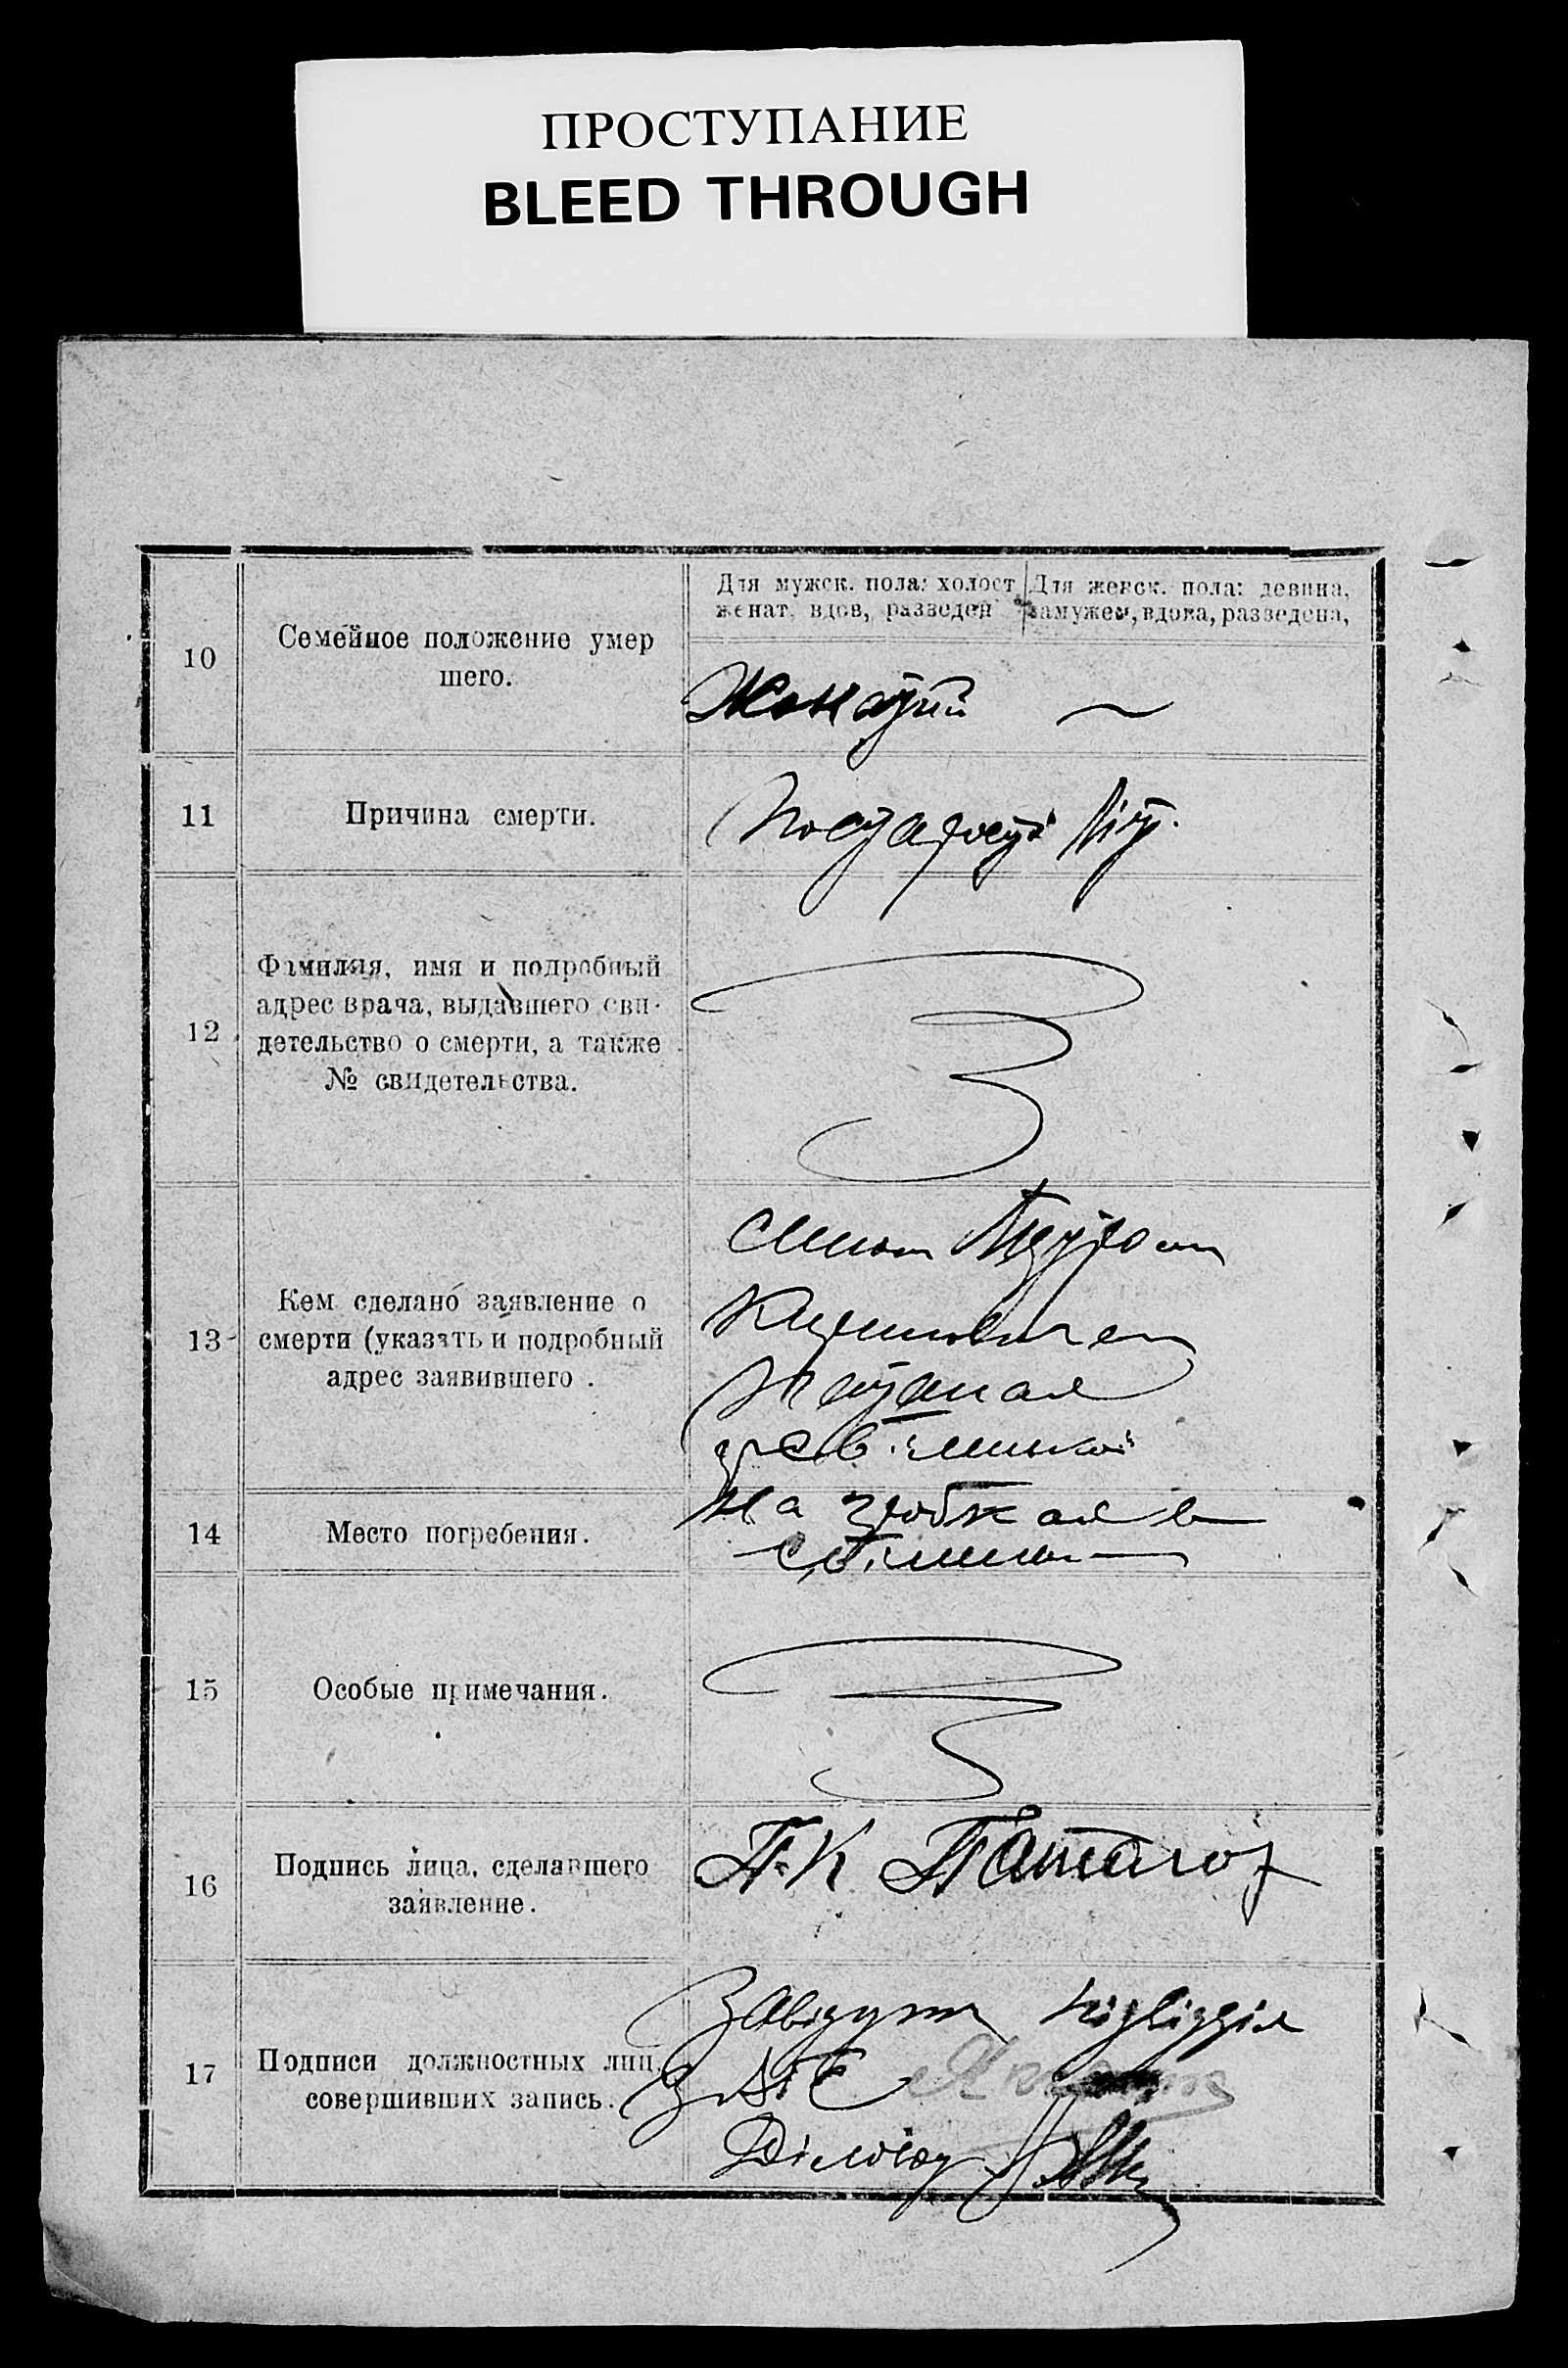 ПРОСТУПАНИЕ
BLEED THROUGH
Для мужск. пола: холост
женат, вдов, разведен
Для женск. пола: девица,
замужем, вдова, разведена,
10
Семейное положение умер
шего.
Жонатий
11
Причина смерти.
По старости літ.
12
Фамилия, имя и подробный
адрес врача, выдавшего сви-
детельство о смерти, а также
№ свидетельства.
13
Кем сделано заявление о
смерти (указать и подробный
адрес заявившего .
Сином
14
Место погребения.
На гробках в
15
Особые примечания.
16
Подпись лица, сделавшего
заявление.
П. К
17
Подписи должностных лиц,
совершивших запись.
Завідуючий підвідділ
ЗАГС
Діловод